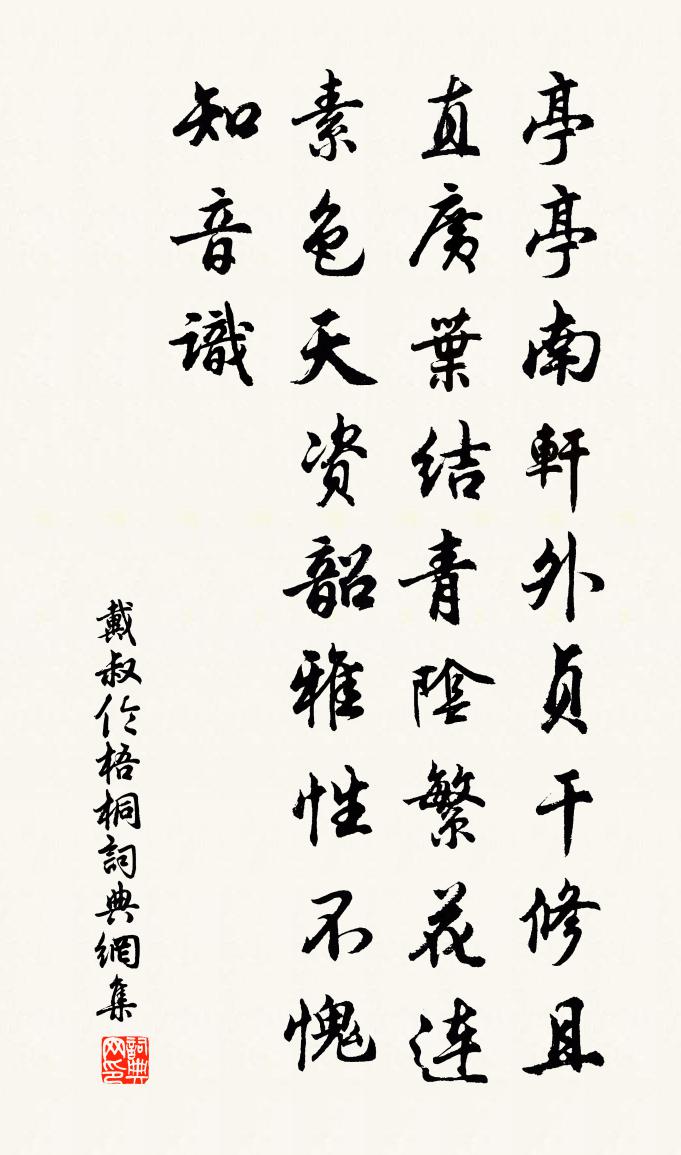 亭亭南軒外貞干修且
直廣葉結青陰繁花連
素色天资韶雅性不愧
知音識
戴叔伦梧桐詞典網集
詞典网印